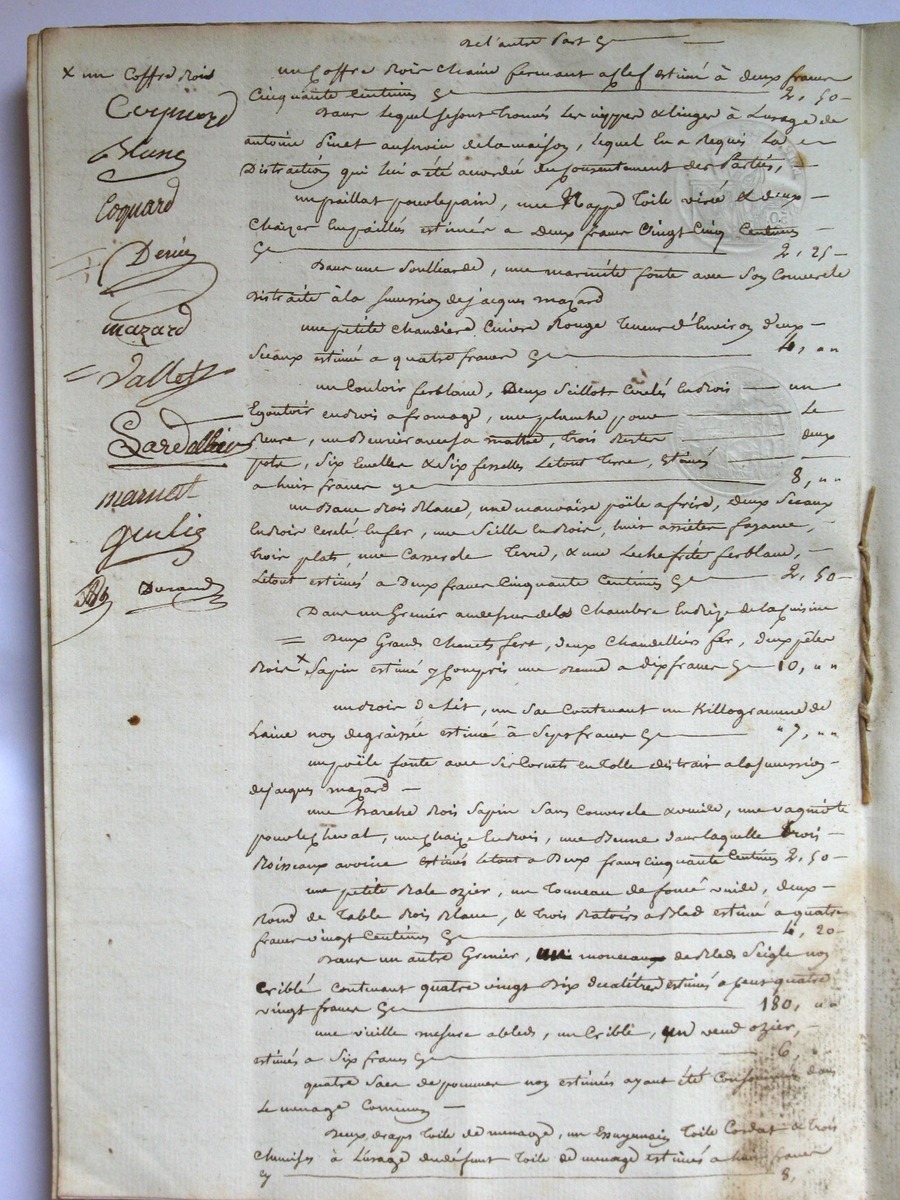 De l'autre Part Cy
x un Coffre Bois
Coquard
Blanc
Coquard
Denis
mazard
Vallet
Sardaillon
marnat
Durand
un Coffre Bois Chaine fermant a clef estimé à deux francs
Cinquante Centimes Cy 2, 50
Dans lequel se sont trouvés les nippes & linges à L'usage de
antoine Pinet au service de la maison, lequel en a Requis La
Distraction qui lui a été accordée du consentement des Parties,
un paillat pour le pain, une Nappe Toile & deux
Chaizes Empaillés estimés a Deux francs Vingt Cinq Centimes
Cy 2, 25
Dans une Soulliarde, une marmitte fonte avec Son Couvercle
distraite à la succession de jacques mazard
une petite Chaudiere Cuivre Rouge Teneur d'Environ deux
Seaux estimé a quatre francs Cy 4, ""
un Couloir ferblanc, Deux Seillots Cerclés en Bois un
Egoutoir en Bois a fromage, une planche pour Le
Beurre, un Beurrier avec sa, trois deux
pots, Six Ecuelles & Six fesselles Le tout Terre, Estimés
a huit francs cy 8, ""
un Banc Bois Blanc, une mauvaise poële a frire, deux Seaux
En Bois Cerclé En fer, une Seille En Bois, huit assiettes fayance,
trois plats, une Casserole Terre, & une Leche frite ferblanc,
Le tout estimés a Deux francs Cinquante Centimes Cy 2, 50
Dans un Grenier au dessus de la Chambre En Bize de la Cuisine
= Deux Grands Chenets fert, deux Chandelliers fer, deux
Bois x Sapin estimé y Compris une a dix francs Cy 10, ""
un Bois de Lit, un Sac Contenant un Killogramme de
Laine non degraissée estimé à Sept francs Cy " 7, ""
un poële fonte avec Six Cornets en Tolle distrait a la Succession
de jacques mazard
une Bois Sapin Sans Couvercle, une
pour le Cheval, une Chaize En Bois, une Benne dans laquelle trois
Boisseaux avoine estimés Le tout a Deux francs Cinquante Centimes 2, 50
une petite ozier, un Tonneau de vuide, deux
Rond de Table Bois Blanc, & trois a Bled estimé a quatre
francs vingt Centimes Cy 4, 20
Dans un autre Grenier, un monceau de Bled Seigle non
Criblé Contenant quatre vingt Dix decalitres estimés a Cent quatre
vingt francs Cy 180, ""
une vieille mesure a bled, un Crible, un ozier,
estimés a Six francs Cy 6, "
quatre Sacs de pommes non estimés ayant été Consommés dans
Le menage Commun
Deux draps Toile de menage, un Toile & trois
Chemises à L'usage du defunt Toile de menage estimés a huit francs
Cy 8,